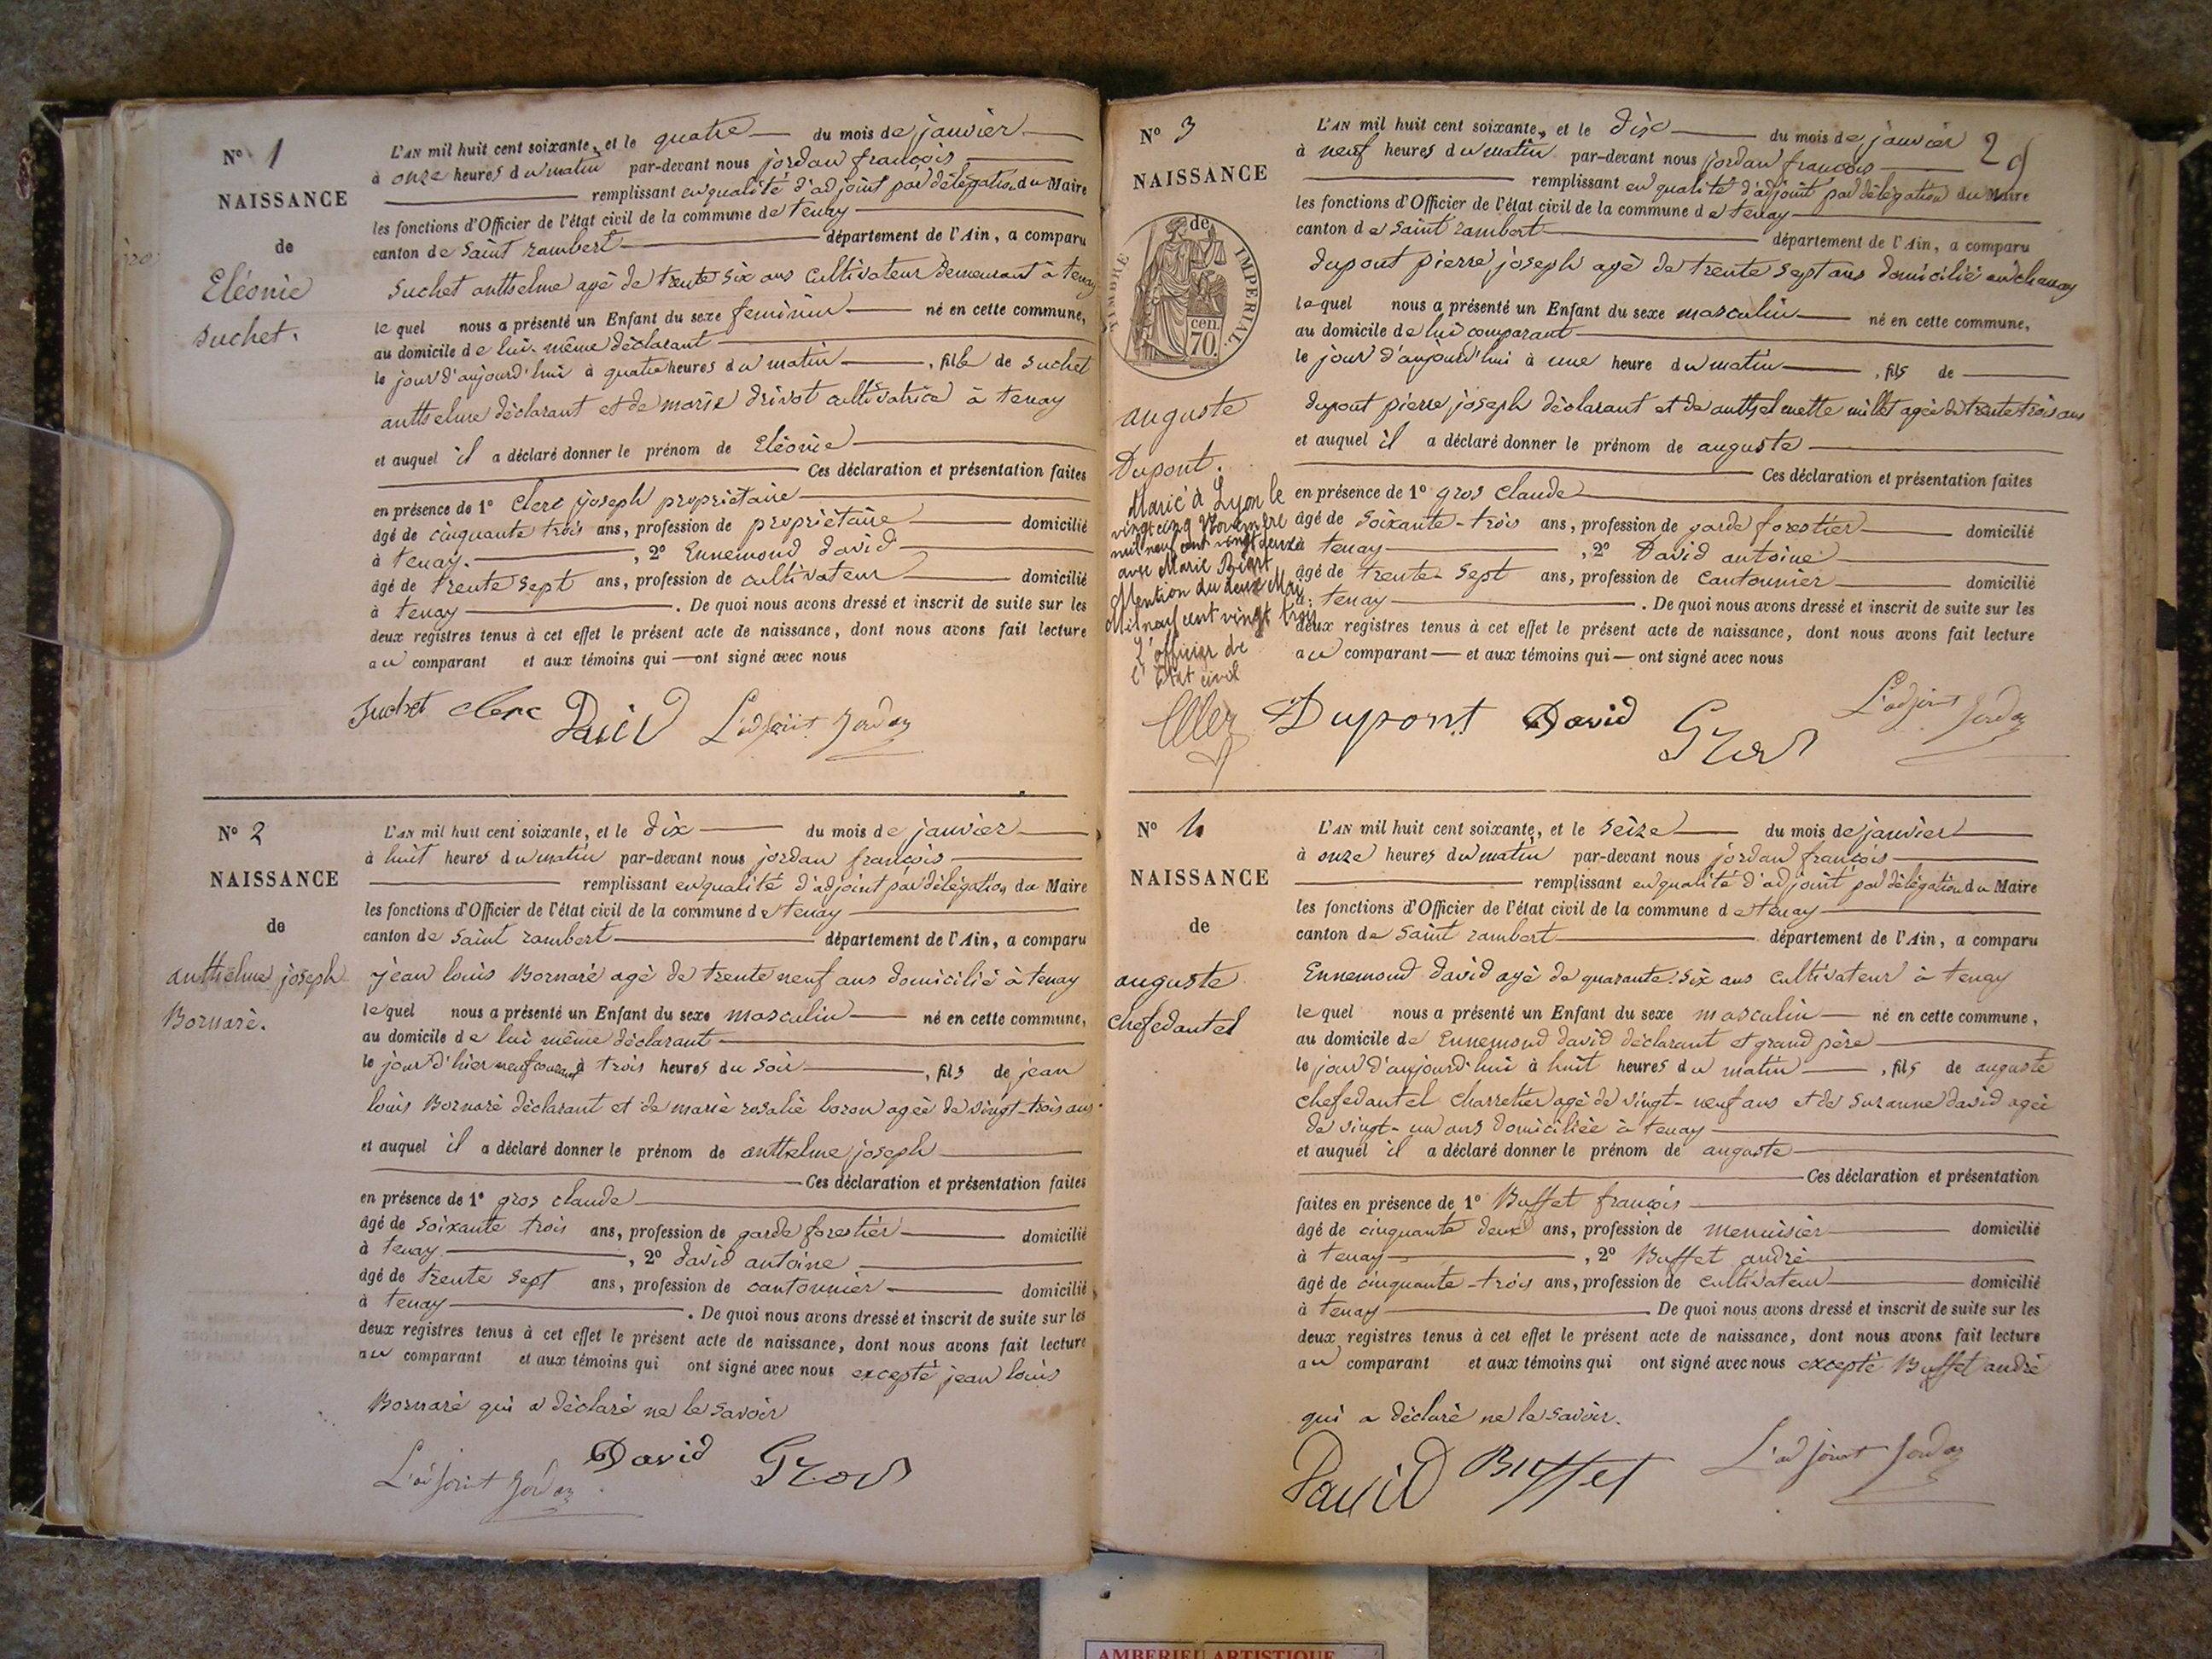 N° 1
NAISSANCE
de
Eléonie
Suchet.
L'AN mil huit cent soixante, et le quatre du mois de janvier
à onze heures du matin par-devant nous jordan françois
remplissant en qualité d'adjoint par délégation du Maire
les fonctions d'Officier de l'état civil de la commune de tenay
canton de Saint rambert département de l'Ain, a comparu
Suchet anthelme agé de trente six ans cultivateur demeurant à tenay
lequel nous a présenté un Enfant du sexe feminin né en cette commune,
au domicile de lui-même déclarant
le jour d'aujourd'hui à quatre heures du matin, fille de Suchet
anthelme déclarant et de marie drivot cultivatrice à tenay
et auquel il a déclaré donner le prénom de Eléonie
Ces déclaration et présentation faites
en présence de 1° Clerc joseph propriétaire
âgé de cinquante trois ans, profession de propriétaire domicilié
à tenay. , 2° Ennemond david
âgé de trente sept ans, profession de cultivateur domicilié
à tenay . De quoi nous avons dressé et inscrit de suite sur les
deux registres tenus à cet effet le présent acte de naissance, dont nous avons fait lecture
au comparant et aux témoins qui ont signé avec nous
Suchet Clerc David L'adjoint Jordan
N° 2
NAISSANCE
de
anthelme joseph
Bornarè.
L'AN mil huit cent soixante, et le dix du mois de janvier
à huit heures du matin par-devant nous jordan françois
remplissant en qualité d'adjoint par délégation du Maire
les fonctions d'Officier de l'état civil de la commune de tenay
canton de Saint rambert département de l'Ain, a comparu
jean louis Bornarè agé de trente neuf ans domicilié à tenay
lequel nous a présenté un Enfant du sexe masculin né en cette commune,
au domicile de lui même déclarant
le jour d'hier neuf courant à trois heures du soir, fils de jean
louis Bornarè déclarant et de marie rosalie bozon agée de vingt-trois ans
et auquel il a déclaré donner le prénom de anthelme joseph
Ces déclaration et présentation faites
en présence de 1° gros claude
âgé de soixante trois ans, profession de garde forestier domicilié
à tenay , 2° david antoine
âgé de trente sept ans, profession de cantonnier domicilié
à tenay . De quoi nous avons dressé et inscrit de suite sur les
deux registres tenus à cet effet le présent acte de naissance, dont nous avons fait lecture
au comparant et aux témoins qui ont signé avec nous excepté jean louis
Bornarè qui a déclaré ne le savoir
L'adjoint Jordan David Gros
N° 3
NAISSANCE
de
TIMBRE IMPERIAL
cen.
70.
auguste
Dupont.
Marié à Lyon le
vingt cinq Novembre
mil neuf cent vingt deux
avec Marie
Mention du deux Mai
Mil neuf cent vingt trois
L'officier de
l'Etat civil
L'AN mil huit cent soixante, et le dix du mois de janvier 2
à neuf heures du matin par-devant nous jordan françois
remplissant en qualité d'adjoint par délégation du Maire
les fonctions d'Officier de l'état civil de la commune de tenay
canton de Saint rambert département de l'Ain, a comparu
dupont pierre joseph agé de trente sept ans domicilié
lequel nous a présenté un Enfant du sexe masculin né en cette commune,
au domicile de lui comparant
le jour d'aujourd'hui à une heure du matin, fils de
dupont pierre joseph déclarant et de anthelmette millet agée de trente trois ans
et auquel il a déclaré donner le prénom de auguste
Ces déclaration et présentation faites
en présence de 1° gros claude
âgé de soixante-trois ans, profession de garde forestier domicilié
à tenay , 2° David antoine
âgé de trente-sept ans, profession de cantonnier domicilié
à tenay . De quoi nous avons dressé et inscrit de suite sur les
deux registres tenus à cet effet le présent acte de naissance, dont nous avons fait lecture
au comparant et aux témoins qui ont signé avec nous
Dupont David Gros L'adjoint Jordan
N° 4
NAISSANCE
de
auguste
chefedautel
L'AN mil huit cent soixante, et le Seize du mois de janvier
à onze heures du matin par-devant nous jordan françois
remplissant en qualité d'adjoint par délégation du Maire
les fonctions d'Officier de l'état civil de la commune de tenay
canton de Saint rambert département de l'Ain, a comparu
Ennemond david agé de quarante-six ans cultivateur à tenay
lequel nous a présenté un Enfant du sexe masculin né en cette commune,
au domicile de Ennemond david déclarant et grand père
le jour d'aujourd'hui à huit heures du matin, fils de auguste
chefedautel charretier agé de vingt-neuf ans et de Suzanne david agée
de vingt-un ans domiciliée à tenay
et auquel il a déclaré donner le prénom de auguste
Ces déclaration et présentation
faites en présence de 1° Buffet françois
âgé de cinquante deux ans, profession de menuisier domicilié
à tenay , 2° Buffet andré
âgé de cinquante-trois ans, profession de cultivateur domicilié
à tenay . De quoi nous avons dressé et inscrit de suite sur les
deux registres tenus à cet effet le présent acte de naissance, dont nous avons fait lecture
au comparant et aux témoins qui ont signé avec nous excepté Buffet andré
qui a déclaré ne le savoir.
David Buffet L'adjoint Jordan
AMBERIEU ARTISTIQUE